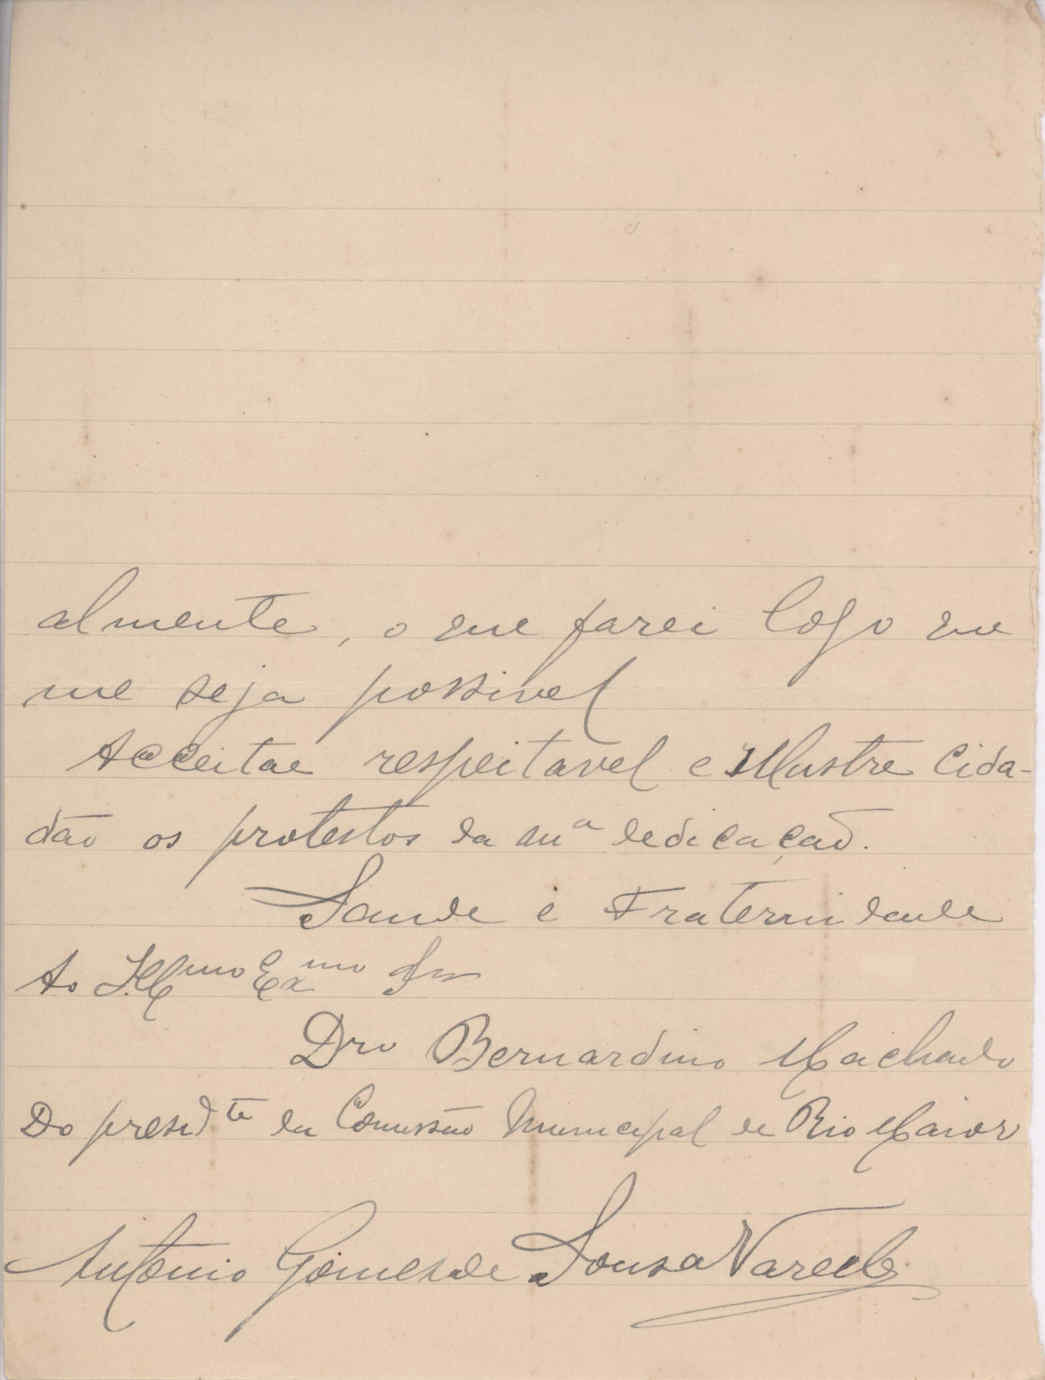 almente, o que farei logo que
me seja possivel
Acceitae respeitavel e Illustre Cida-
dão os protestos da mª dedicação.
Saude e Fraternidade
Ao Illmo Exmo Snr
Dro Bernardino Machado
Do presidte da Comissão Municipal de Rio Maior
Antonio Gomes de Sousa Varella